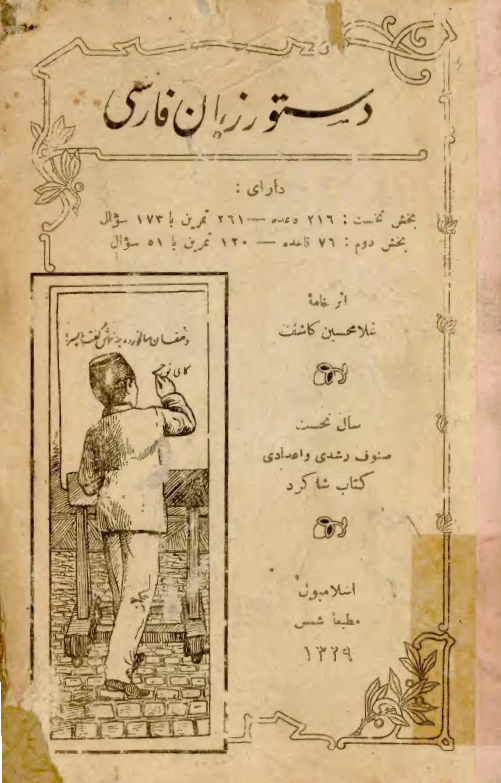 دستور زبان فارسی
دارای :
بخش نخست : ۲۱۶ قاعده — ۲۶۱ تمرین با ۱۷۳ سؤال
بخش دوم : ۷۶ قاعده — ۱۲۰ تمرین با ۵۱ سؤال
اثر خامهٔ
غلامحسین کاشف
دهقان سالخورده چه خوش گفت با پسر
کای نور چ
سال نخست
صنوف رشدی واعدادی
کتاب شاکرد
اسلامبول
مطبعهٔ شمس
۱۳۲۹